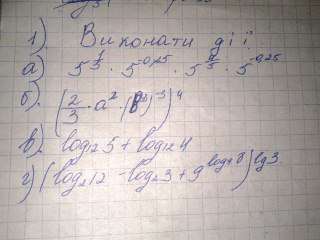 1). Виконати дії:
а) 5^{\frac{1}{3}} · 5^{-0,25} · 5^{\frac{2}{3}} · 5^{-0,25}
б). (\frac{2}{3} · a^2 · (b^2)^{-3})^4
в). log_{12} 5 + log_{12} 4
г) (log_2 12 - log_2 3 + 9^{log_9 8})^{lg 3}